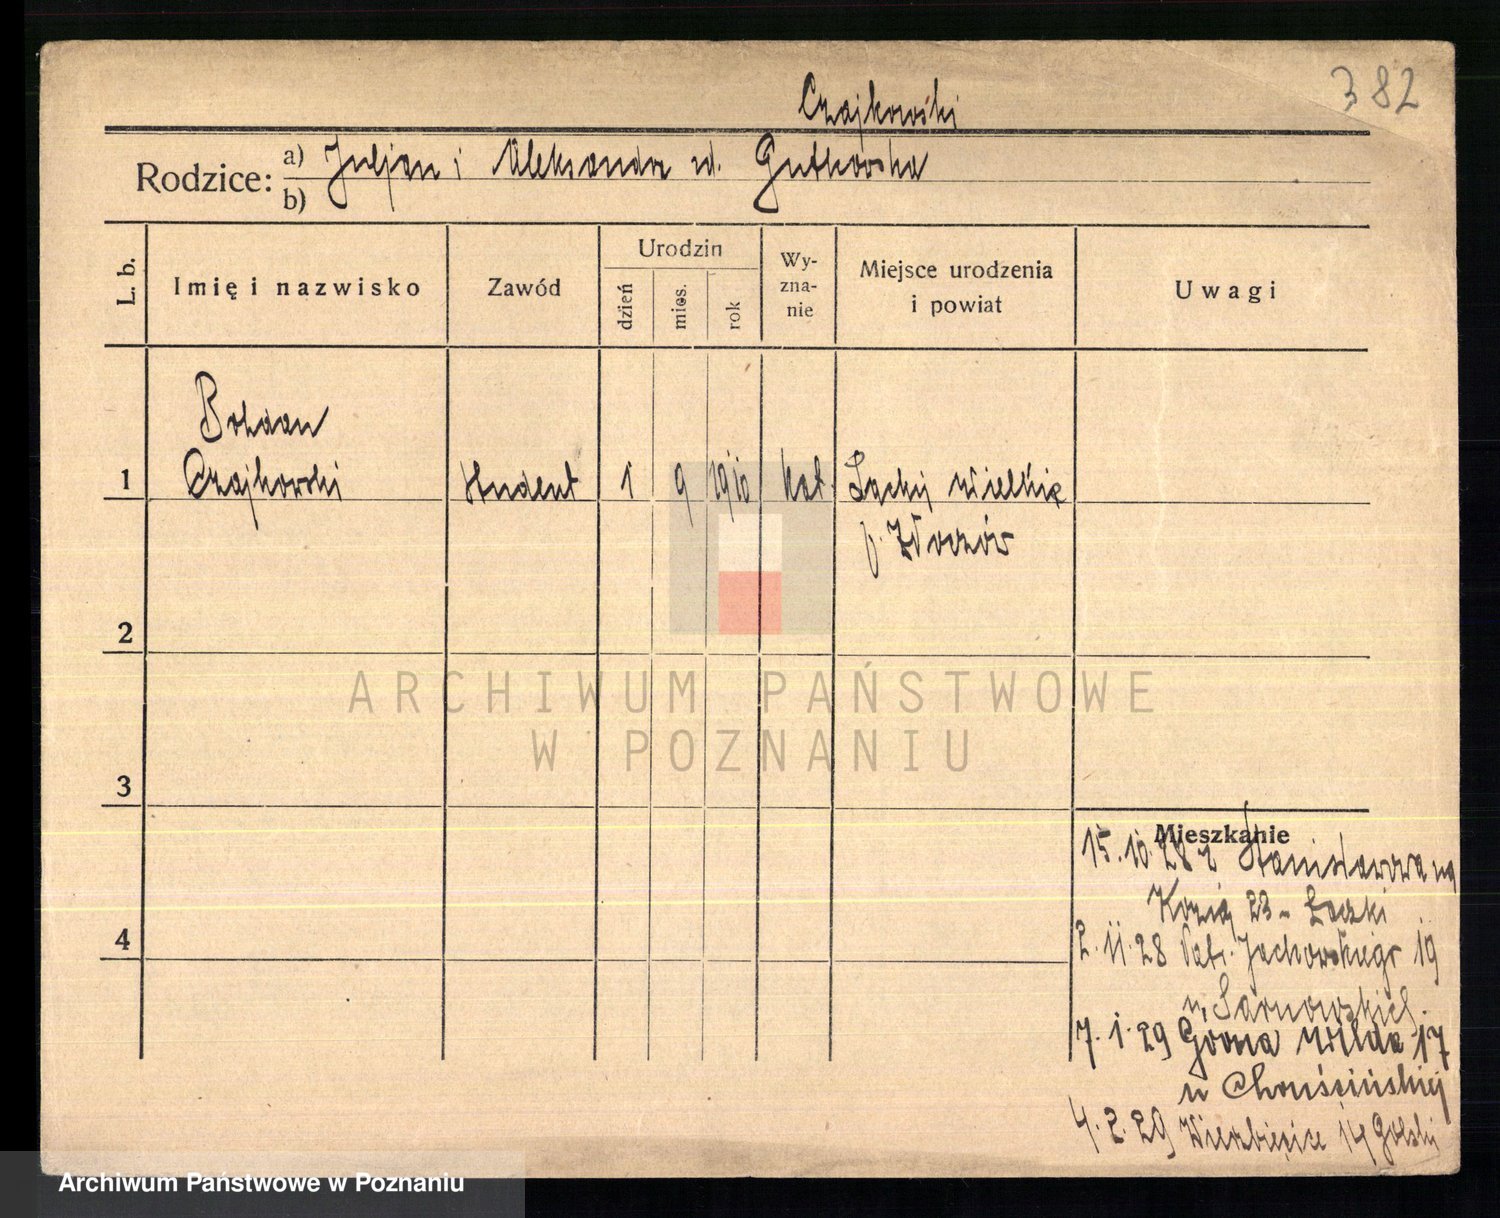 382
Czajkowski
Rodzice: a) Juljan i Aleksandra ud. Gutkowska
b)
L. b.
Imię i nazwisko
Zawód
Urodzin
dzień
mies.
rok
Wy-
zna-
nie
Miejsce urodzenia
i powiat
Uwagi
Bohdan
1 Czajkowski student 1 9 1910 kat. Lackie Wielkie
p. Złoczów
2
3
4
Mieszkanie
15.10.28 z Stanisławowa na
Kozią 23 -
2.11.28 Patr. Jackowskiego 19
u Sarnowskich
7.1.29 Górna Wilda 17
u
4.2.29 Wierzbięcice 14
ARCHIWUM PAŃSTWOWE
W POZNANIU
Archiwum Państwowe w Poznaniu